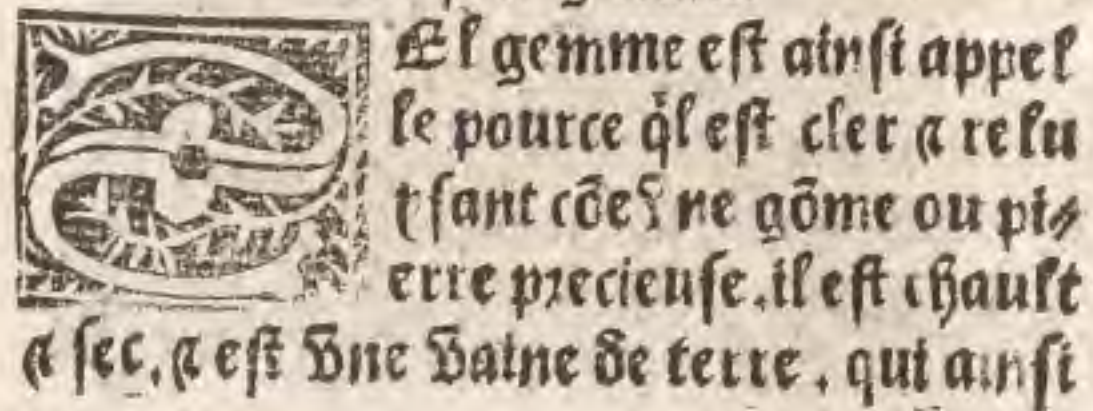 SEl gemme est ainsi appel
le pource q̃l est cler ⁊ relu
ysant cõe vne gõme ou pi⸗
erre precieuse. il est chault
⁊ sec. ⁊ est vne vaine de terre. qui ainsi